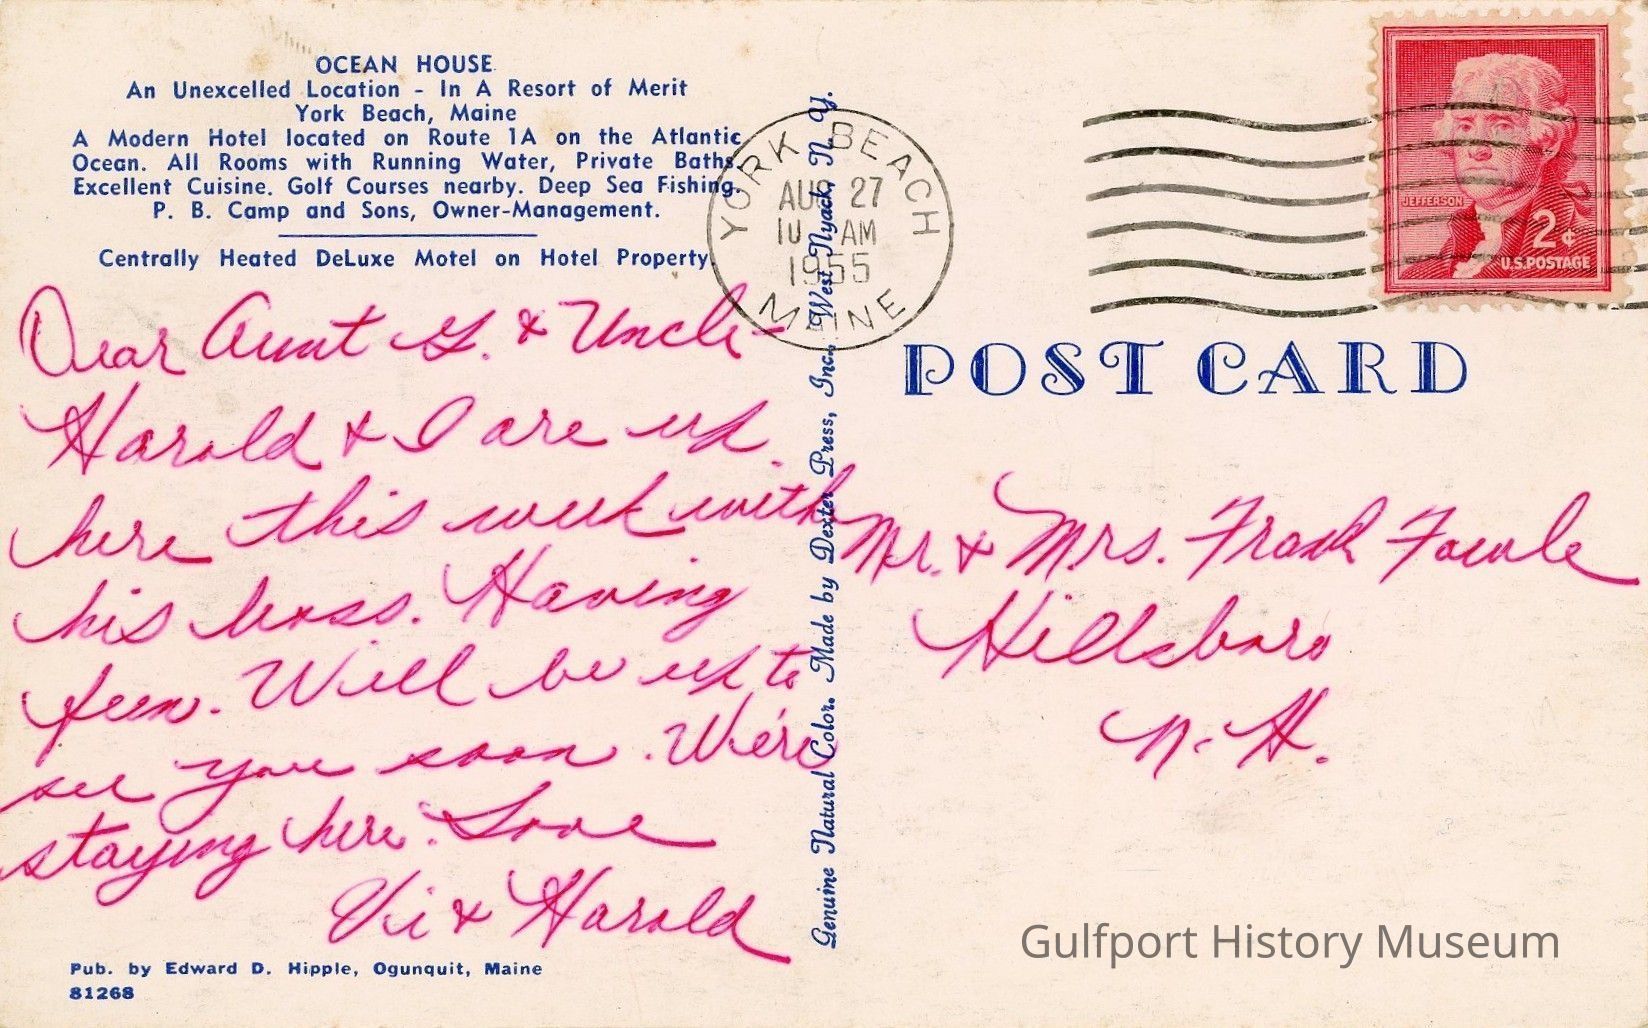 OCEAN HOUSE
An Unexcelled Location - In A Resort of Merit
York Beach, Maine
A Modern Hotel located on Route 1A on the Atlantic
Ocean. All Rooms with Running Water, Private Baths.
Excellent Cuisine. Golf Courses nearby. Deep Sea Fishing.
P. B. Camp and Sons, Owner-Management.
Centrally Heated DeLuxe Motel on Hotel Property.
Dear Aunt G. & Uncle-
Harold & I are up
here this week with
his boss. Having
fun. Will be up to
see you soon. We're
staying here. Love
Vi & Harold
Pub. by Edward D. Hipple, Ogunquit, Maine
81268
Genuine Natural Color. Made by Dexter Press, Inc., West Nyack, N. Y.
YORK BEACH
AUG 27
10 AM
1955
MAINE
JEFFERSON
2¢
U.S. POSTAGE
POST CARD
Mr. & Mrs. Frank Fowle
Hillsboro
N. H.
Gulfport History Museum